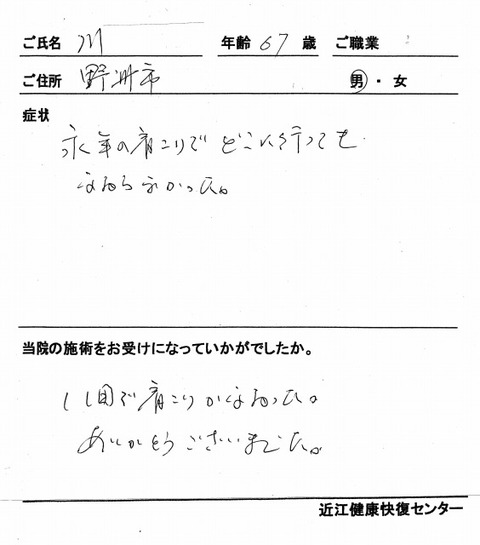 ご氏名 川 年齢 67 歳 ご職業
ご住所 野洲市 男・女
症状
永年の肩こりでどこに行っても
なおらなかった。
当院の施術をお受けになっていかがでしたか。
1回で肩こりがなおった。
ありがとうございました。
近江健康快復センター